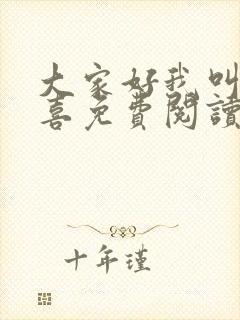 大家好我叫
喜免費閱讀
十年瑾